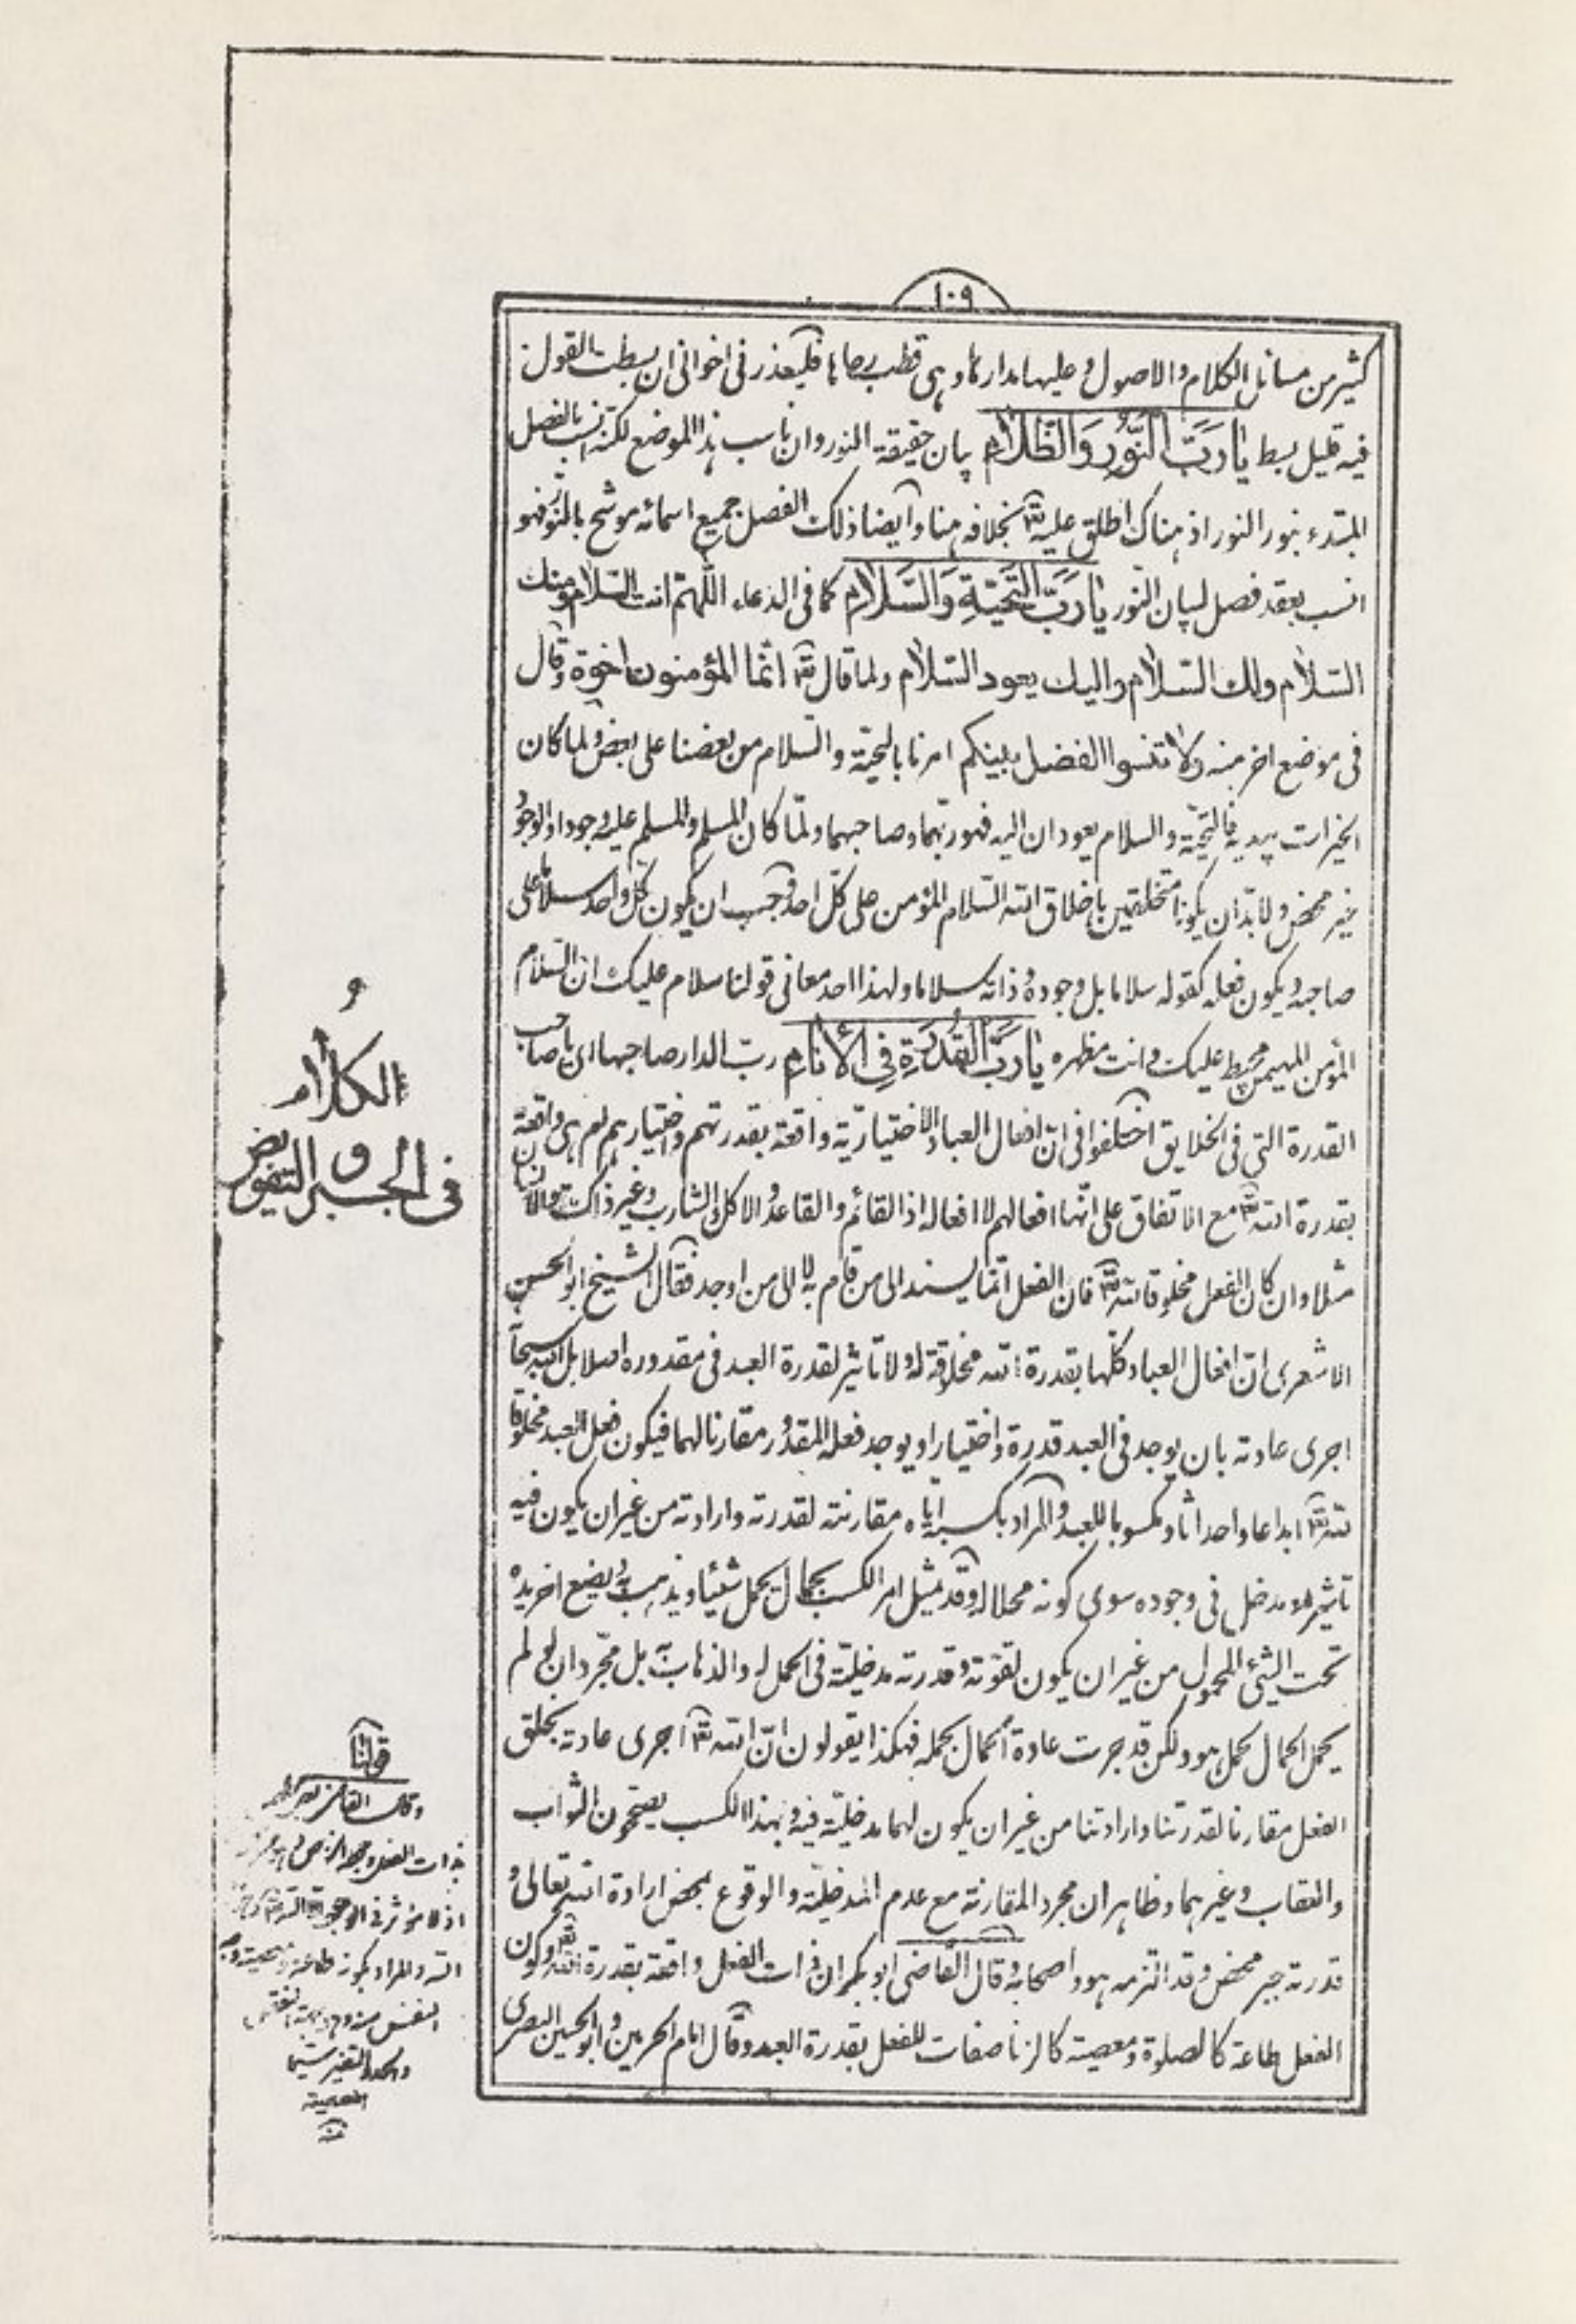 ١٠٩
كثير من مسائل الكلام والاصول وعليها مدارها وهى قطب رحاها فليعذرنى اخوانى ان بسطت القول
فيه قليل بسط يا رَبَّ النُّورِ وَالظَّلامِ بيان حقيقة النور وان ناسب هذا الموضع لكنه انسب بالفصل
المبتدء بنور النور اذ هناك اطلق عليه تعالى بخلافه هنا وايضا ذلك الفصل جميع اسمائه موشح بالنور فهو
انسب بعقد فصل لبيان النور يا رَبَّ التَّحِيَّةِ وَالسَّلامِ كما فى الدعاء اللهم انت السلام ومنك
السلام ولك السلام واليك يعود السلام ولما قال تعالى انما المؤمنون اخوة وقال
فى موضع اخر منه ولا تنسوا الفضل بينكم امرنا بالتحية والسلام من بعضنا على بعض ولما كان
الخيرات بيديه فالتحية والسلام يعودان اليه فهو ربهما وصاحبهما ولما كان المسلم والمسلم عليه وجودا والوجود
خير محض ولابد ان يكونا متخلقين باخلاق الله السلام المؤمن على كل احد وجب ان يكون كل واحد سلاما على
صاحبه ويكون فعله كقوله سلاما بل وجوده وذاته سلاما ولهذا احد معانى قولنا سلام عليك ان السلام
المؤمن المهيمن محيط عليك وانت مظهره يا رَبَّ القُدْرَةِ فِى الأَنامِ رب الدار صاحبها اى يا صاحب
القدرة التى فى الخلايق اختلفوا فى ان افعال العباد الاختيارية واقعة بقدرتهم واختيارهم ام هى واقعة
بقدرة الله تعالى مع الاتفاق على انها افعالهم لا افعاله اذ القائم والقاعد والاكل والشارب وغير ذلك هو الانسان
مثلا وان كان الفعل مخلوقا لله تعالى فان الفعل انما يسند الى من قام به لا الى من اوجد فقال الشيخ ابو الحسن
الاشعرى ان افعال العباد كلها بقدرة الله مخلوقة له ولا تاثير لقدرة العبد فى مقدوره اصلا بل الله سبحانه
اجرى عادته بان يوجد فى العبد قدرة واختيارا ويوجد فعله المقدور مقارنا لهما فيكون فعل العبد مخلوقا
لله تعالى ابداعا واحداثا ومكسوبا للعبد والمراد بكسبه اياه مقارنته لقدرته وارادته من غير ان يكون فيه
تاثير او مدخل فى وجوده سوى كونه محلا له وقد مثل امر الكسب بحمال يحمل شيئا ويذهب به ويضع اخر يده
تحت الشئ المحمول من غير ان يكون لقوته وقدرته مدخلية فى الحمل له والذهاب به بل مجرد ان لو لم
يحمل الحمال يحمل هو ولكن قد جرت عادة الحمال بحمله فهكذا يقولون ان الله تعالى اجرى عادته بخلق
الفعل مقارنا لقدرتنا وارادتنا من غير ان يكون لهما مدخلية فيه وبهذا الكسب يصححون الثواب
والعقاب وغيرهما وظاهر ان مجرد المقارنة مع عدم المدخلية والوقوع بمحض ارادة الله تعالى و
قدرته جبر محض وقد التزمه هو واصحابه وقال القاضى ابو بكر ان ذات الفعل واقعة بقدرة الله تعالى وكون
الفعل طاعة كالصلوة ومعصية كالزنا صفات للفعل بقدرة العبد وقال امام الحرمين وابو الحسين البصرى
و
الكلام
فى الجبر والتفويض
قولنا
وقال القاضى
اذ لا مؤثر فى الوجود